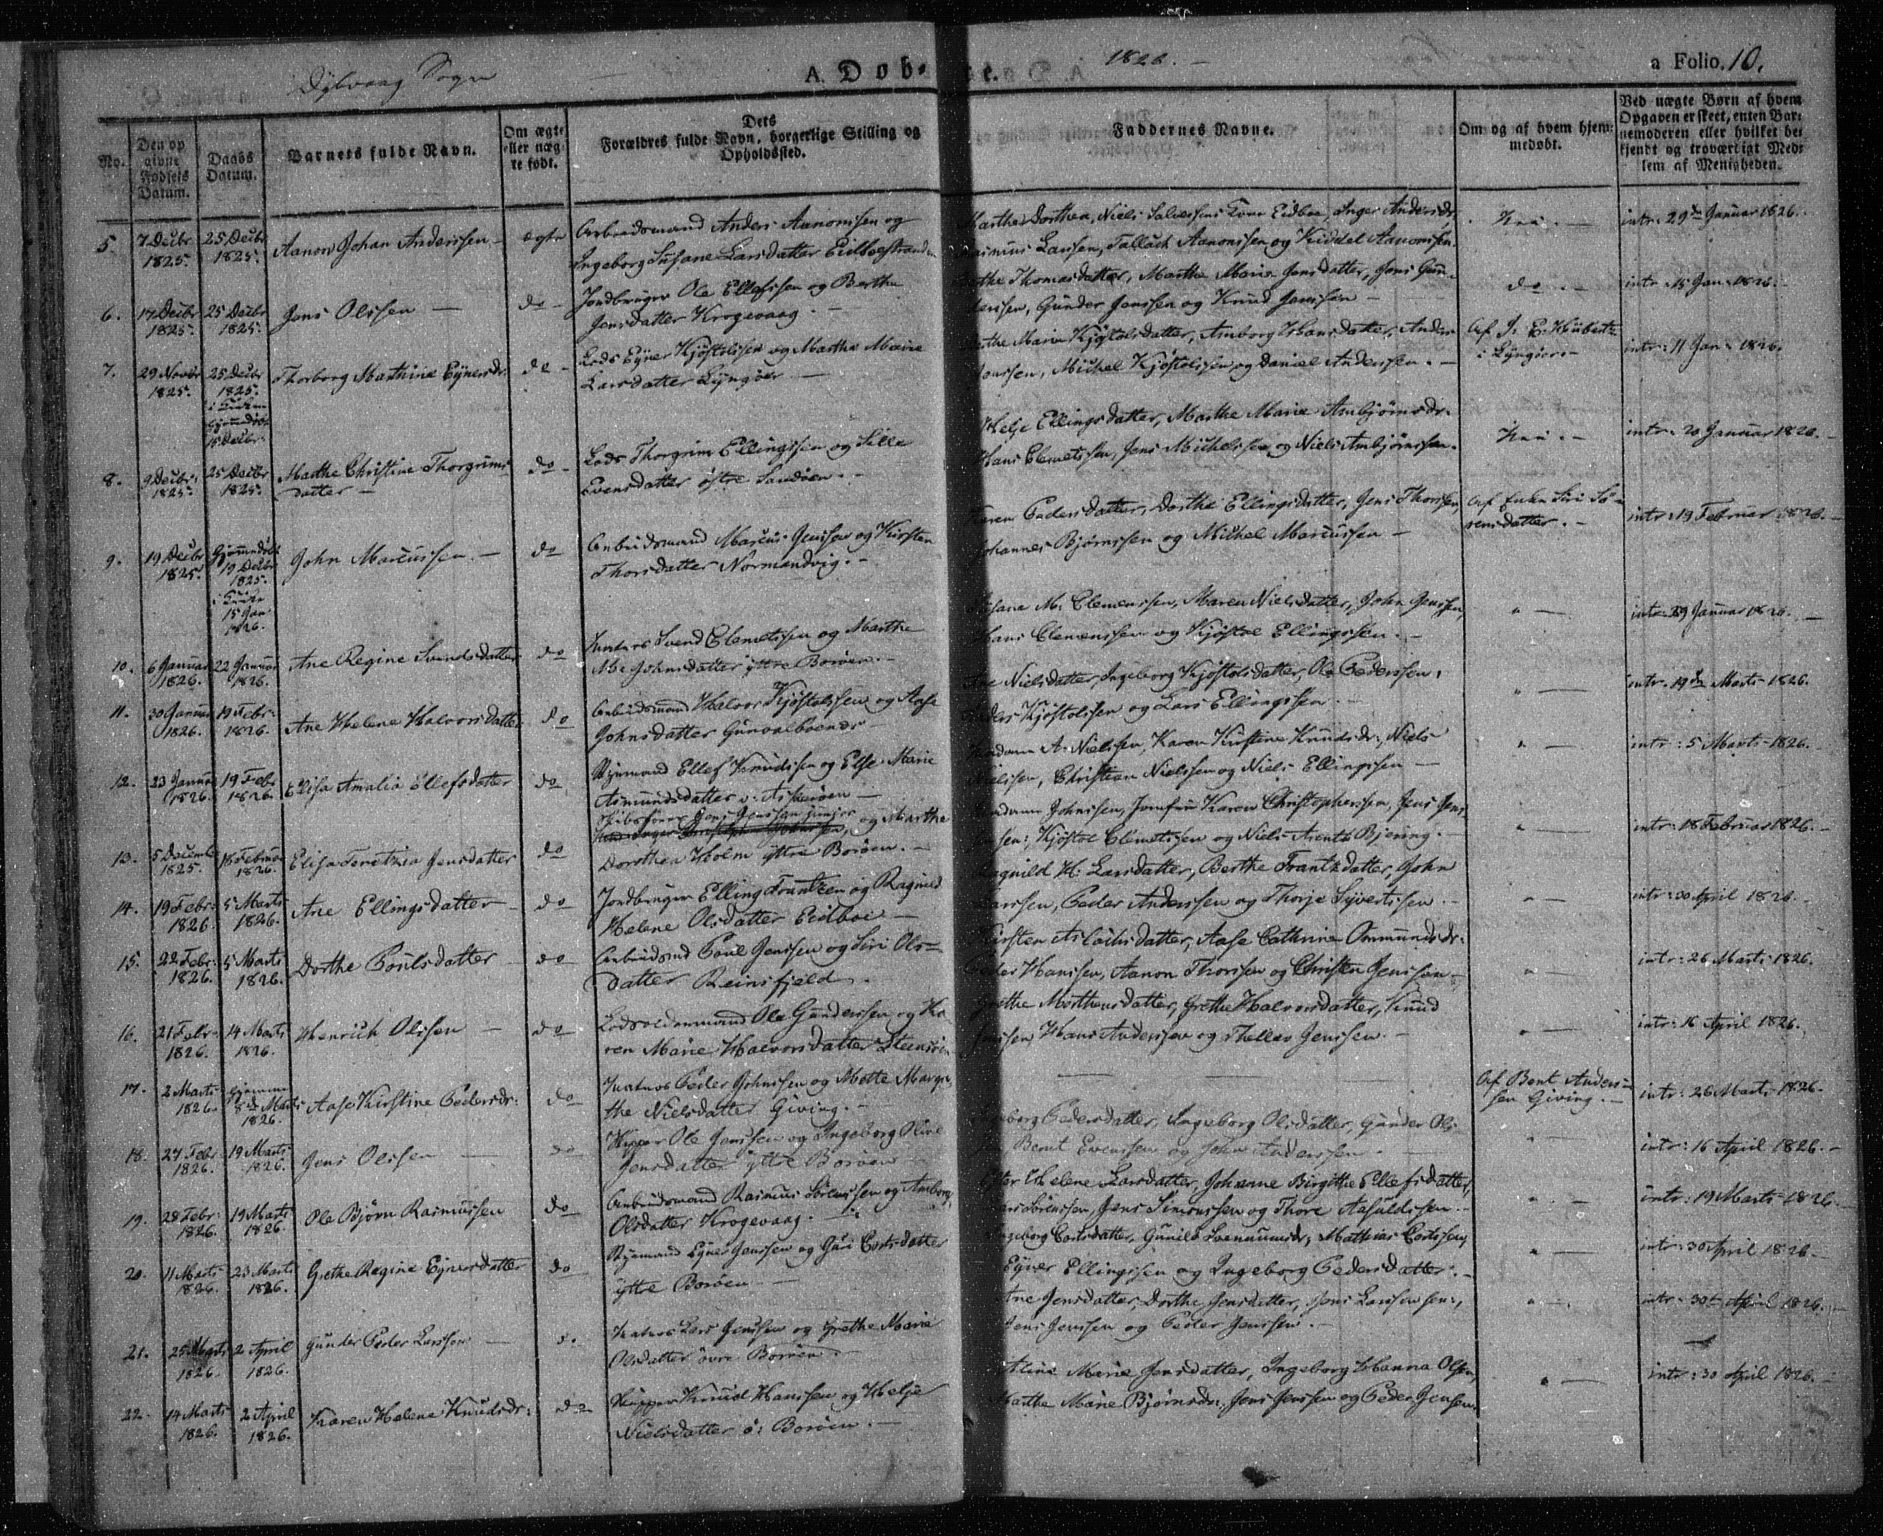 Dybvaag Sogn
A. Døbte.
1826.
a Folio. 10.
No.
Den opgivne Fødsels Datum.
Daabs Datum.
Barnets fulde Navn.
Om ægte eller uægte født.
Dets Forældres fulde Navn, borgerlige Stilling og Opholdssted.
Faddernes Navne.
Om og af hvem hjemmedøbt.
Ved uægte Børn af hvem Opgaven er skeet, enten Barnemoderen eller hvilket bekjendt og troværdigt Medlem af Menigheden.
5. 7 Decbr 1825. 25 Decbr 1825. Aanon Johan Anderssen ægte
Arbeidsmand Anders Aanonssen og
Ingeborg Susane Larsdatter Eidboestranden
Marthe Dorthea, Niels Salvessens Kone Eidboe, Inger Andersdr,
Rasmus Larssen, Tallach Aanonssen og Kiddel Aanonssen.
intr: 29de Januar 1826.
6. 17 Decbr 1825. 25 Decbr 1825. Jens Olssen do
Jordbruger Ole Ellefssen og Berthe
Jensdatter Krogevaag.
Thomasdatter, Marthe Marie Jensdatter, Jens Gunderssen, Gunder Jenssen og Knud Jenssen
do
intr: 15 Jan: 1826.
7. 29 Novbr 1825. 25 Decbr 1825. i Kirken Hjemmedøbt 15 Decbr. Thorborg Mathine Eynersdr: do
Lods Eyner Kjøstolssen og Marthe Marie
Larsdatter Lyngøer
Marie Kjøstolsdatter, Amborg Hansdatter, Anders
Michel Kjøstolssen og Daniel Anderssen.
Af J. E. Hübert i Lyngøer.
intr: 11 Jan: 1826.
8. 9 Decbr: 1825. 25 Decbr 1825. Marthe Christine Thorgrimsdatter do
Lods Thorgrim Ellingssen og Sille
Evensdatter østre Sandøen.
Helje Ellingsdatter, Marthe Marie Ambjørnsdr:
Hans Clemetssen, Jens Michelssen og Niels Ambjørnssen.
intr: 20 Januar 1826.
9. 19 Decbr 1825. Hjemmedøbt 19 Decbr 1825. i Kirke 15 Jan: 1826. John Marcussen. do
Arbeidsmand Marcus Jenssen og Kirsten
Thorsdatter Normandvig.
Karen Pedersdatter, Dorthe Ellingsdatter, Jens Thorssen,
Johannes Bjørnssen og Michel Marcussen
Af Enken Siri Sørensdatter.
intr: 19 Februar 1826.
10. 6 Januar 1826. 22 Januar 1826. Ane Regine Svendsdatter do
Svend Clemetssen og Marthe
Me: Johnsdatter yttre Borøen.
M: Clemenssen, Maren Nielsdatter, John Jenssen,
Hans Clemenssen og Kjøstol Ellingssen.
intr: 29 Januar 1826.
11. 30 Januar 1826. 19 Febr: 1826. Ane Helene Halvorsdatter do
Arbeidsmand Halvor Kjøstolssen og Aase
Johnsdatter Gunvalboende
Ane Nielsdatter, Ingeborg Kjøstolsdatter, Ole Pederssen,
Kjøstolssen og Lars Ellingssen.
intr: 19de Marts 1826.
12. 23 Januar 1826. 19 Febr 1826. Elisa Amalia Ellefsdatter do
Ellef Knudssen og Else Marie
Asmundsdatter v: Askerøen
Madame A: Nielssen, Karen Kirstine Knudsdr:, Niels
Nielssen, Christian Nielssen og Niels Ellingssen
intr: 5 Marts 1826.
13. 5 Decemb 1825. 18 Februar 1826. Elisa Jensdatter do
Skibsfører Jens Jenssen junior og Marthe
Dorothea Holm yttre Borøen.
Madame Johnssen, Jomfrue Karen Christopherssen, Jens Jenssen, Kjøstol Clemetssen og Niels Arentz Bjering.
intr: 18 Februar 1826.
14. 19 Febr: 1826. 5 Marts 1826. Ane Ellingsdatter do
Jordbruger Elling Frantzen og Ragnild
Helene Olsdatter Eidboe
Ragnild H: Larsdatter, Berthe Frantzdatter, John
Larssen, Peder Anderssen og Thorje Syvertssen.
intr: 30 April 1826.
15. 22 Febr: 1826. 5 Marts 1826. Dorthe Poulsdatter do
Arbeidsmd Poul Jenssen og Siri Olsdatter Reinsfjeld
Kirsten Aslachsdatter, Aase Cathrine Osmundsdr:
Peder Hanssen, Aanon Thorssen og Christen Jenssen
intr: 26 Marts 1826.
16. 21 Febr: 1826. 14 Marts 1826. Henrich Olssen do
Lodsoldermand Ole Gunderssen og Karen Marie Halvorsdatter Steensøen
Grethe Morthensdatter, Grethe Halvorsdatter, Knud
Jenssen Hans Anderssen og Thelles Jenssen.
intr: 16 April 1826.
17. 2 Marts 1826. Hjemme 8de Marts 1826. Aase Kirstine Pedersdr: do
Peder Johnssen og Mette Margrethe Nielsdatter Giving.
Af Bent Anderssen Giving.
intr: 26 Marts 1826.
18. 27 Febr 1826. 19 Marts 1826. Jens Olssen do
Skipper Ole Jenssen og Ingeborg Oline
Jensdatter yttre Borøen
Amborg Pedersdatter, Ingeborg Olsdatter, Gunder Ols
Bernt Evenssen og John Anderssen.
intr: 16 April 1826.
19. 28 Febr: 1826. 19 Marts 1826. Ole Bjørn Rasmussen do
Arbeidsmand Rasmus Sørenssen og Amborg
Olsdatter Krogevaag.
Helene Larsdatter, Johanne Birgithe Ellefsdatter,
Sørenssen, Jens Simonssen og Thore Aasuldssen.
intr: 19 Marts 1826.
20. 11 Marts 1826. 23 Marts 1826. Grethe Regine Eynersdatter do
Eyner Jenssen og Guri Cortsdatter
yttre Borøen
Ingeborg Cortsdatter, Gunild Svenumsdr:, Mathias Cortssen,
Eyner Ellingssen og Ingeborg Pedersdatter.
intr: 30 April 1826.
21. 25 Marts 1826. 2 April 1826. Gunder Peder Larssen do
Lars Jenssen og Grethe Marie
Olsdatter øvre Borøen.
Ane Jensdatter, Dorthe Jensdatter, Jens Larssen,
Jens Jenssen og Peder Jenssen.
intr: 30te April 1826.
22. 14 Marts 1826. 2 April 1826. Karen Helene Knudsdr: do
Skipper Knud Hanssen og Helje
Nielsdatter ø: Borøen.
Marie Jensdatter, Ingeborg Hanna Olsen,
Marthe Marie Bjørnsdr:, Jens Jenssen og Peder Jenssen.
intr: 30 April 1826.